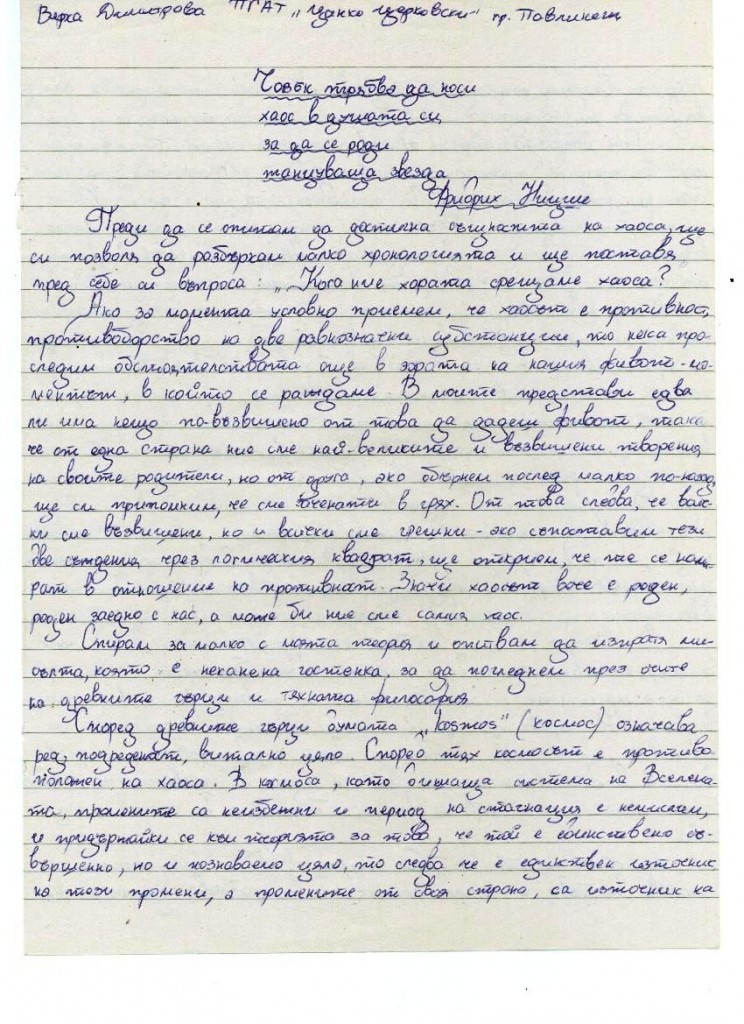 Верка Димитрова ПГАТ „Цанко Церковски" гр. Павликени
Човек трябва да носи
хаос в душата си
за да се роди
танцуваща звезда
Фридрих Ницше
Преди да се опитам да достигна същността на хаоса, ще
си позволя да разбъркам малко хронологията и ще поставя
пред себе си въпроса: „Кога ние хората срещаме хаоса?
Ако за момента условно приемем, че хаосът е противност,
противоборство на две равнозначни субстанции, то нека про-
следим обстоятелствата още в зората на нашия живот - мо-
ментът, в който се раждаме. В моите представи едва
ли има нещо по-възвишено от това да дадеш живот, така
че от една страна ние сме най-великите и възвишени творения
на своите родители, но от друга, ако обърнем поглед малко по-назад,
ще си припомним, че сме заченати в грях. От това следва, че всич-
ки сме възвишени, но и всички сме грешни - ако съпоставим тези
две съждения чрез логическия квадрат, ще открием, че те се нами-
рат в отношение на противност. Значи хаосът вече е роден,
роден заедно с нас, а може би ние сме самия хаос.
Спирам за малко с моята теория и опитвам да изпратя ми-
сълта, която е неканена гостенка, за да погледнем през очите
на древните гърци и тяхната философия
Според древните гърци думата „kosmos" (космос) означава
ред, подреденост, витално цяло. Според тях космосът е противо
положен на хаоса. В космоса, като дишаща система на Вселена-
та, промените са неизбежни и период на стагнация е немислим,
и придържайки се към теорията за това, че той е единствено съ-
вършенно, но и познаваемо цяло, то следва че е единствен източник
на тези промени, а промените от своя страна, са източник на